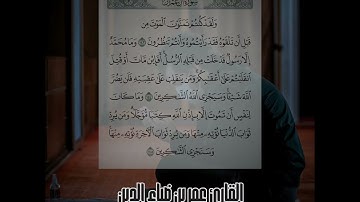 سورة آل عمران
وَلَقَدْ كُنتُمْ تَمَنَّوْنَ ٱلْمَوْتَ مِن
قَبْلِ أَن تَلْقَوْهُ فَقَدْ رَأَيْتُمُوهُ وَأَنتُمْ تَنظُرُونَ ۝ وَمَا مُحَمَّدٌ
إِلَّا رَسُولٌ قَدْ خَلَتْ مِن قَبْلِهِ ٱلرُّسُلُ أَفَإِي۟ن مَّاتَ أَوْ قُتِلَ
ٱنقَلَبْتُمْ عَلَىٰٓ أَعْقَٰبِكُمْ وَمَن يَنقَلِبْ عَلَىٰ عَقِبَيْهِ فَلَن يَضُرَّ
ٱللَّهَ شَيْـًٔا وَسَيَجْزِى ٱللَّهُ ٱلشَّٰكِرِينَ ۝ وَمَا كَانَ
لِنَفْسٍ أَن تَمُوتَ إِلَّا بِإِذْنِ ٱللَّهِ كِتَٰبًا مُّؤَجَّلًا وَمَن يُرِدْ
ثَوَابَ ٱلدُّنْيَا نُؤْتِهِۦ مِنْهَا وَمَن يُرِدْ ثَوَابَ ٱلْءَاخِرَةِ نُؤْتِهِۦ مِنْهَا
وَسَنَجْزِى ٱلشَّٰكِرِينَ ۝
القارئ عمر بن ضياء الدين